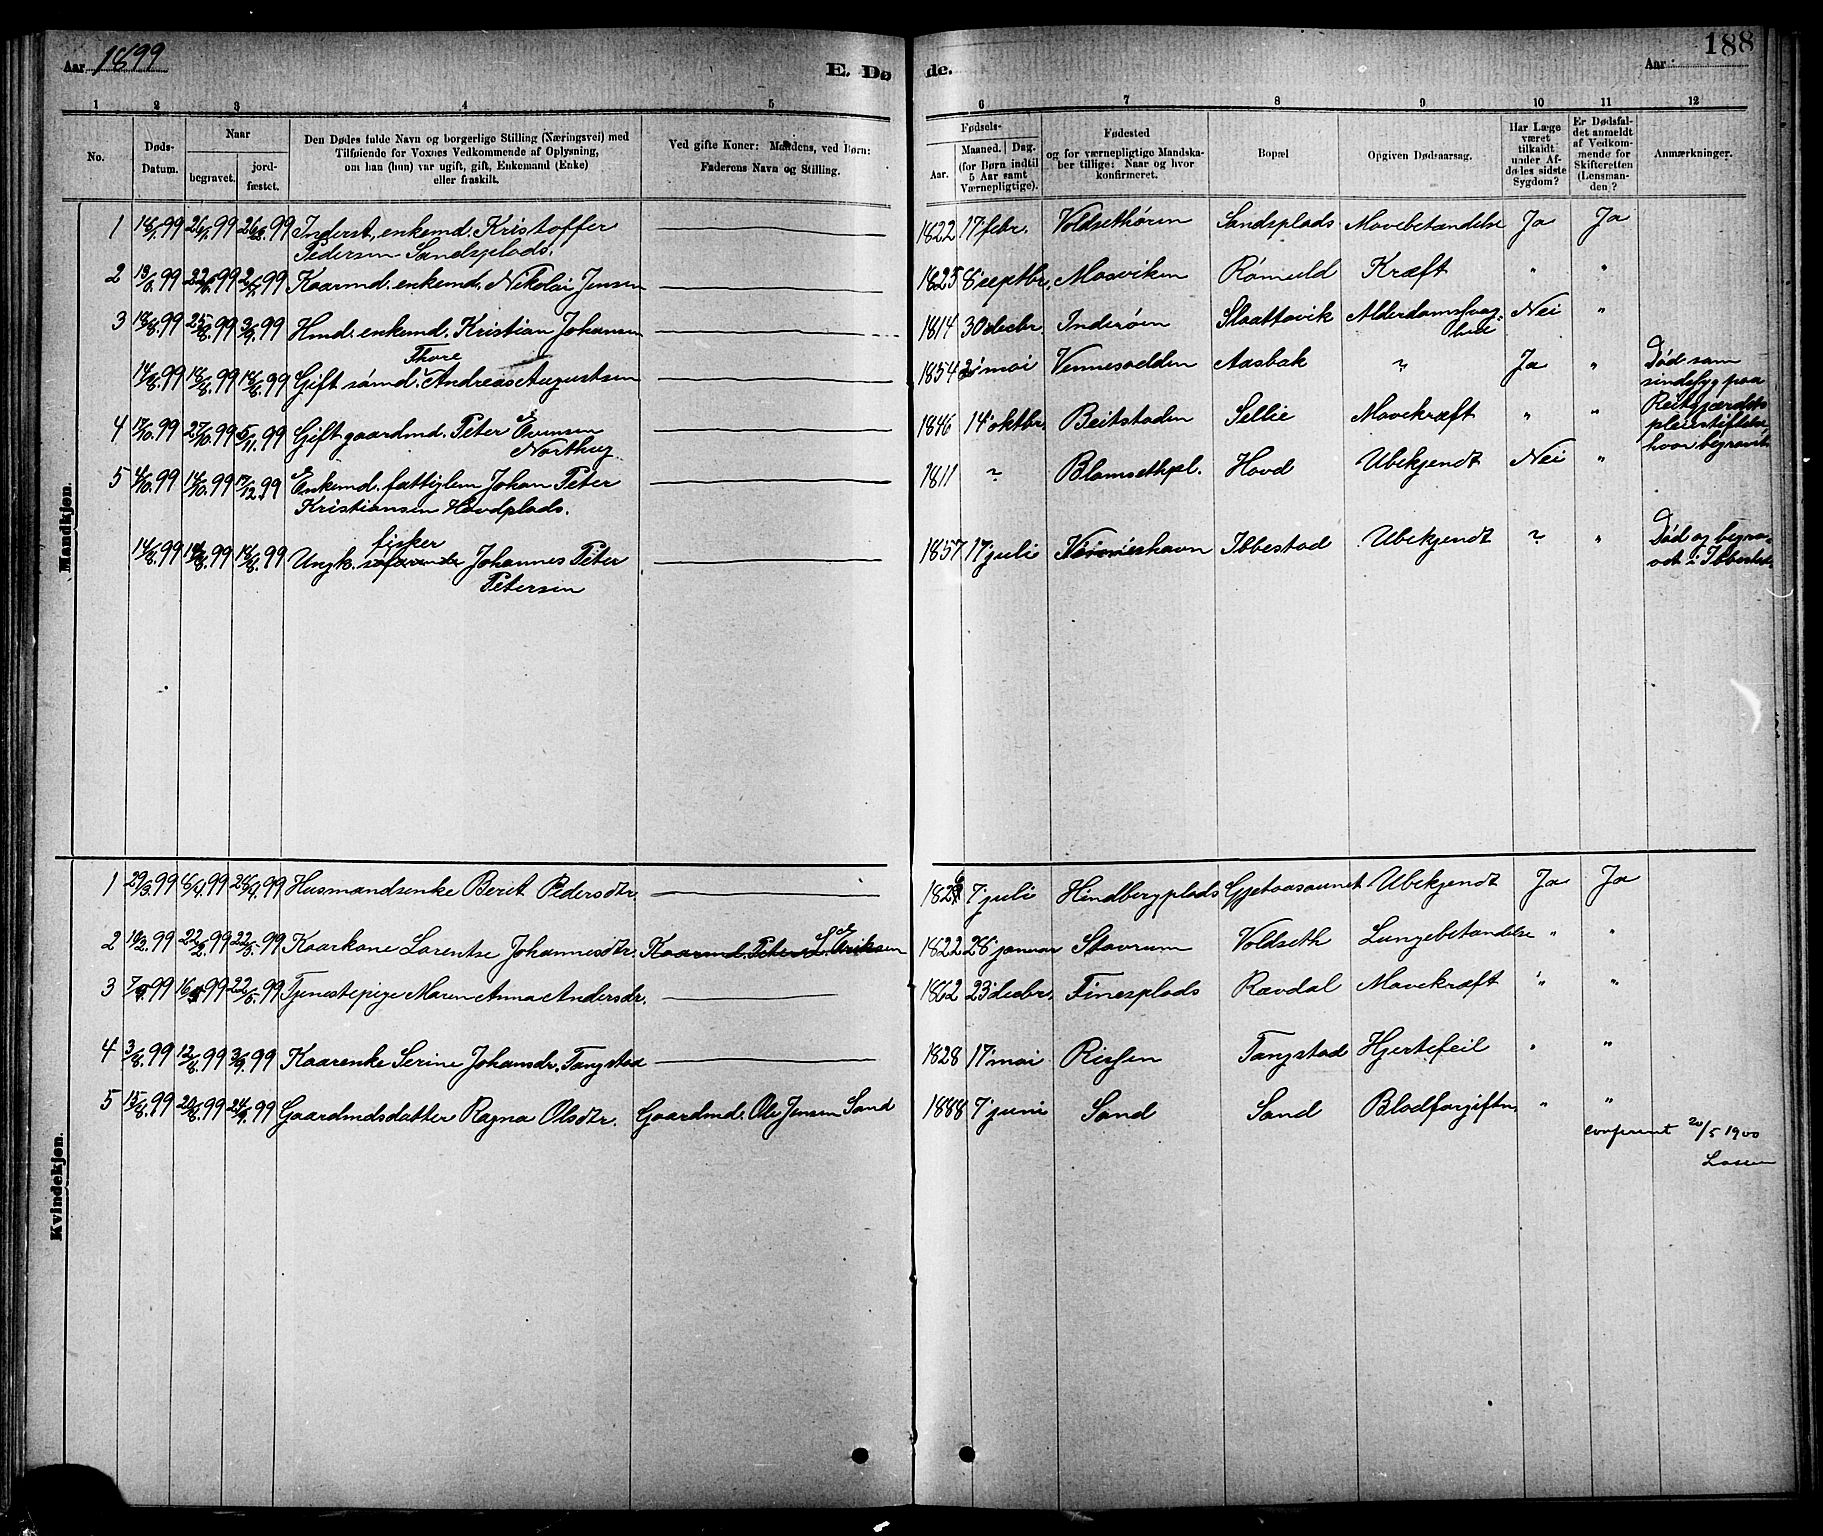 Aar 1899
E. Døde.
Aar
188
1 2 3 4 5 6 7 8 9 10 11 12
No.
Døds-Datum.
Naar
begravet.
jord-fæstet.
Den Dødes fulde Navn og borgerlige Stilling (Næringsvei) med
Tilføiende for Voxnes Vedkommende af Oplysning,
om han (hun) var ugift, gift, Enkemand (Enke)
eller fraskilt.
Ved gifte Koner: Mandens, ved Børn:
Faderens Navn og Stilling.
Fødsels-
Aar.
Maaned. Dag.
(for Børn indtil
5 Aar samt
Værnepligtige).
Fødested
og for værnepligtige Mandska-
ber tillige: Naar og hvor
konfirmeret.
Bopæl
Opgiven Dødsaarsag.
Har Læge
været
tilkaldt
under Af-
dødes sidste
Sygdom?
Er Dødsfal-
det anmeldt
af Vedkom-
mende for
Skifteretten
(Lensman-
den)?
Anmærkninger.
Mandkjøn.
1 18/1 99 26/1 99 99 Inderst, enkemd. Kristoffer 1822 17 febr. Voldsethøren Sandsplads Mavebetændelse Ja Ja
Pedersen Sandsplads.
2 99 99 99 Kaarmd. enkemd. Nikolai Jensen 1825 8 septbr. Mosviken Rømuld Kræft " "
3 18/8 99 25/8 99 3/9 99 Hmd. enkemd. Kristian Johansen 1814 30 decbr. Inderøen Slaattavik Alderdomssvag-
hed Nei "
Thore
14/8 99 18/8 99 18/8 99 Gift sømd. Andreas Augustsen 1854 mai Vennesvedden Aasbak " Ja " Død som
sindssyg paa
Reitgjærdets
pleiestiftelse,
hvor begravet.
4 17/10 99 27/10 99 5/11 99 Gift gaardmd. Peter Evensen 1846 14 oktbr. Beitstaden Sellie Mavekræft " "
Northug
5 4/10 99 14/10 99 17/12 99 Enkemd. fattiglem Johan Peter 1811 ? Blomsethpl. Hovd Ubekjendt Nei "
Kristiansen Hovdplads.
fisker
14/8 99 18/8 99 18/8 99 Ungk. søfarende Johannes Peter 1857 17 juli Ibbestad Ubekjendt ? " Død og begra-
vet i Ibbestad.
Petersen
Kvindekjøn.
1 29/3 99 8/4 99 99 Husmandsenke Berit Pedersdtr. 182 7 juli Hindbergplads Gjetaasaunet Ubekjendt Ja Ja
2 99 99 22/5 99 Kaarkone Lorentse Johannesdtr. Kaarmd. Peter Eriksen 1822 28 januar Stavrum Voldseth Lungebetændelse " "
3 99 16 99 22/5 99 Tjenestepige Maren Anna Andersdr. 1862 23 decbr. Finesplads Ravdal Mavekræft " "
4 3/8 99 12/8 99 3/9 99 Kaarenke Serine Johansdr. Tangstad 1828 17 mai Rissen Tangstad Hjertefeil " "
5 15/8 99 99 24/9 99 Gaardmdsdatter Ragna Olsdtr. Gaardmd. Ole Jensen Sand 1888 7 juni Sand Sand Blodforgiftn. " "
conferert 20/5 1900